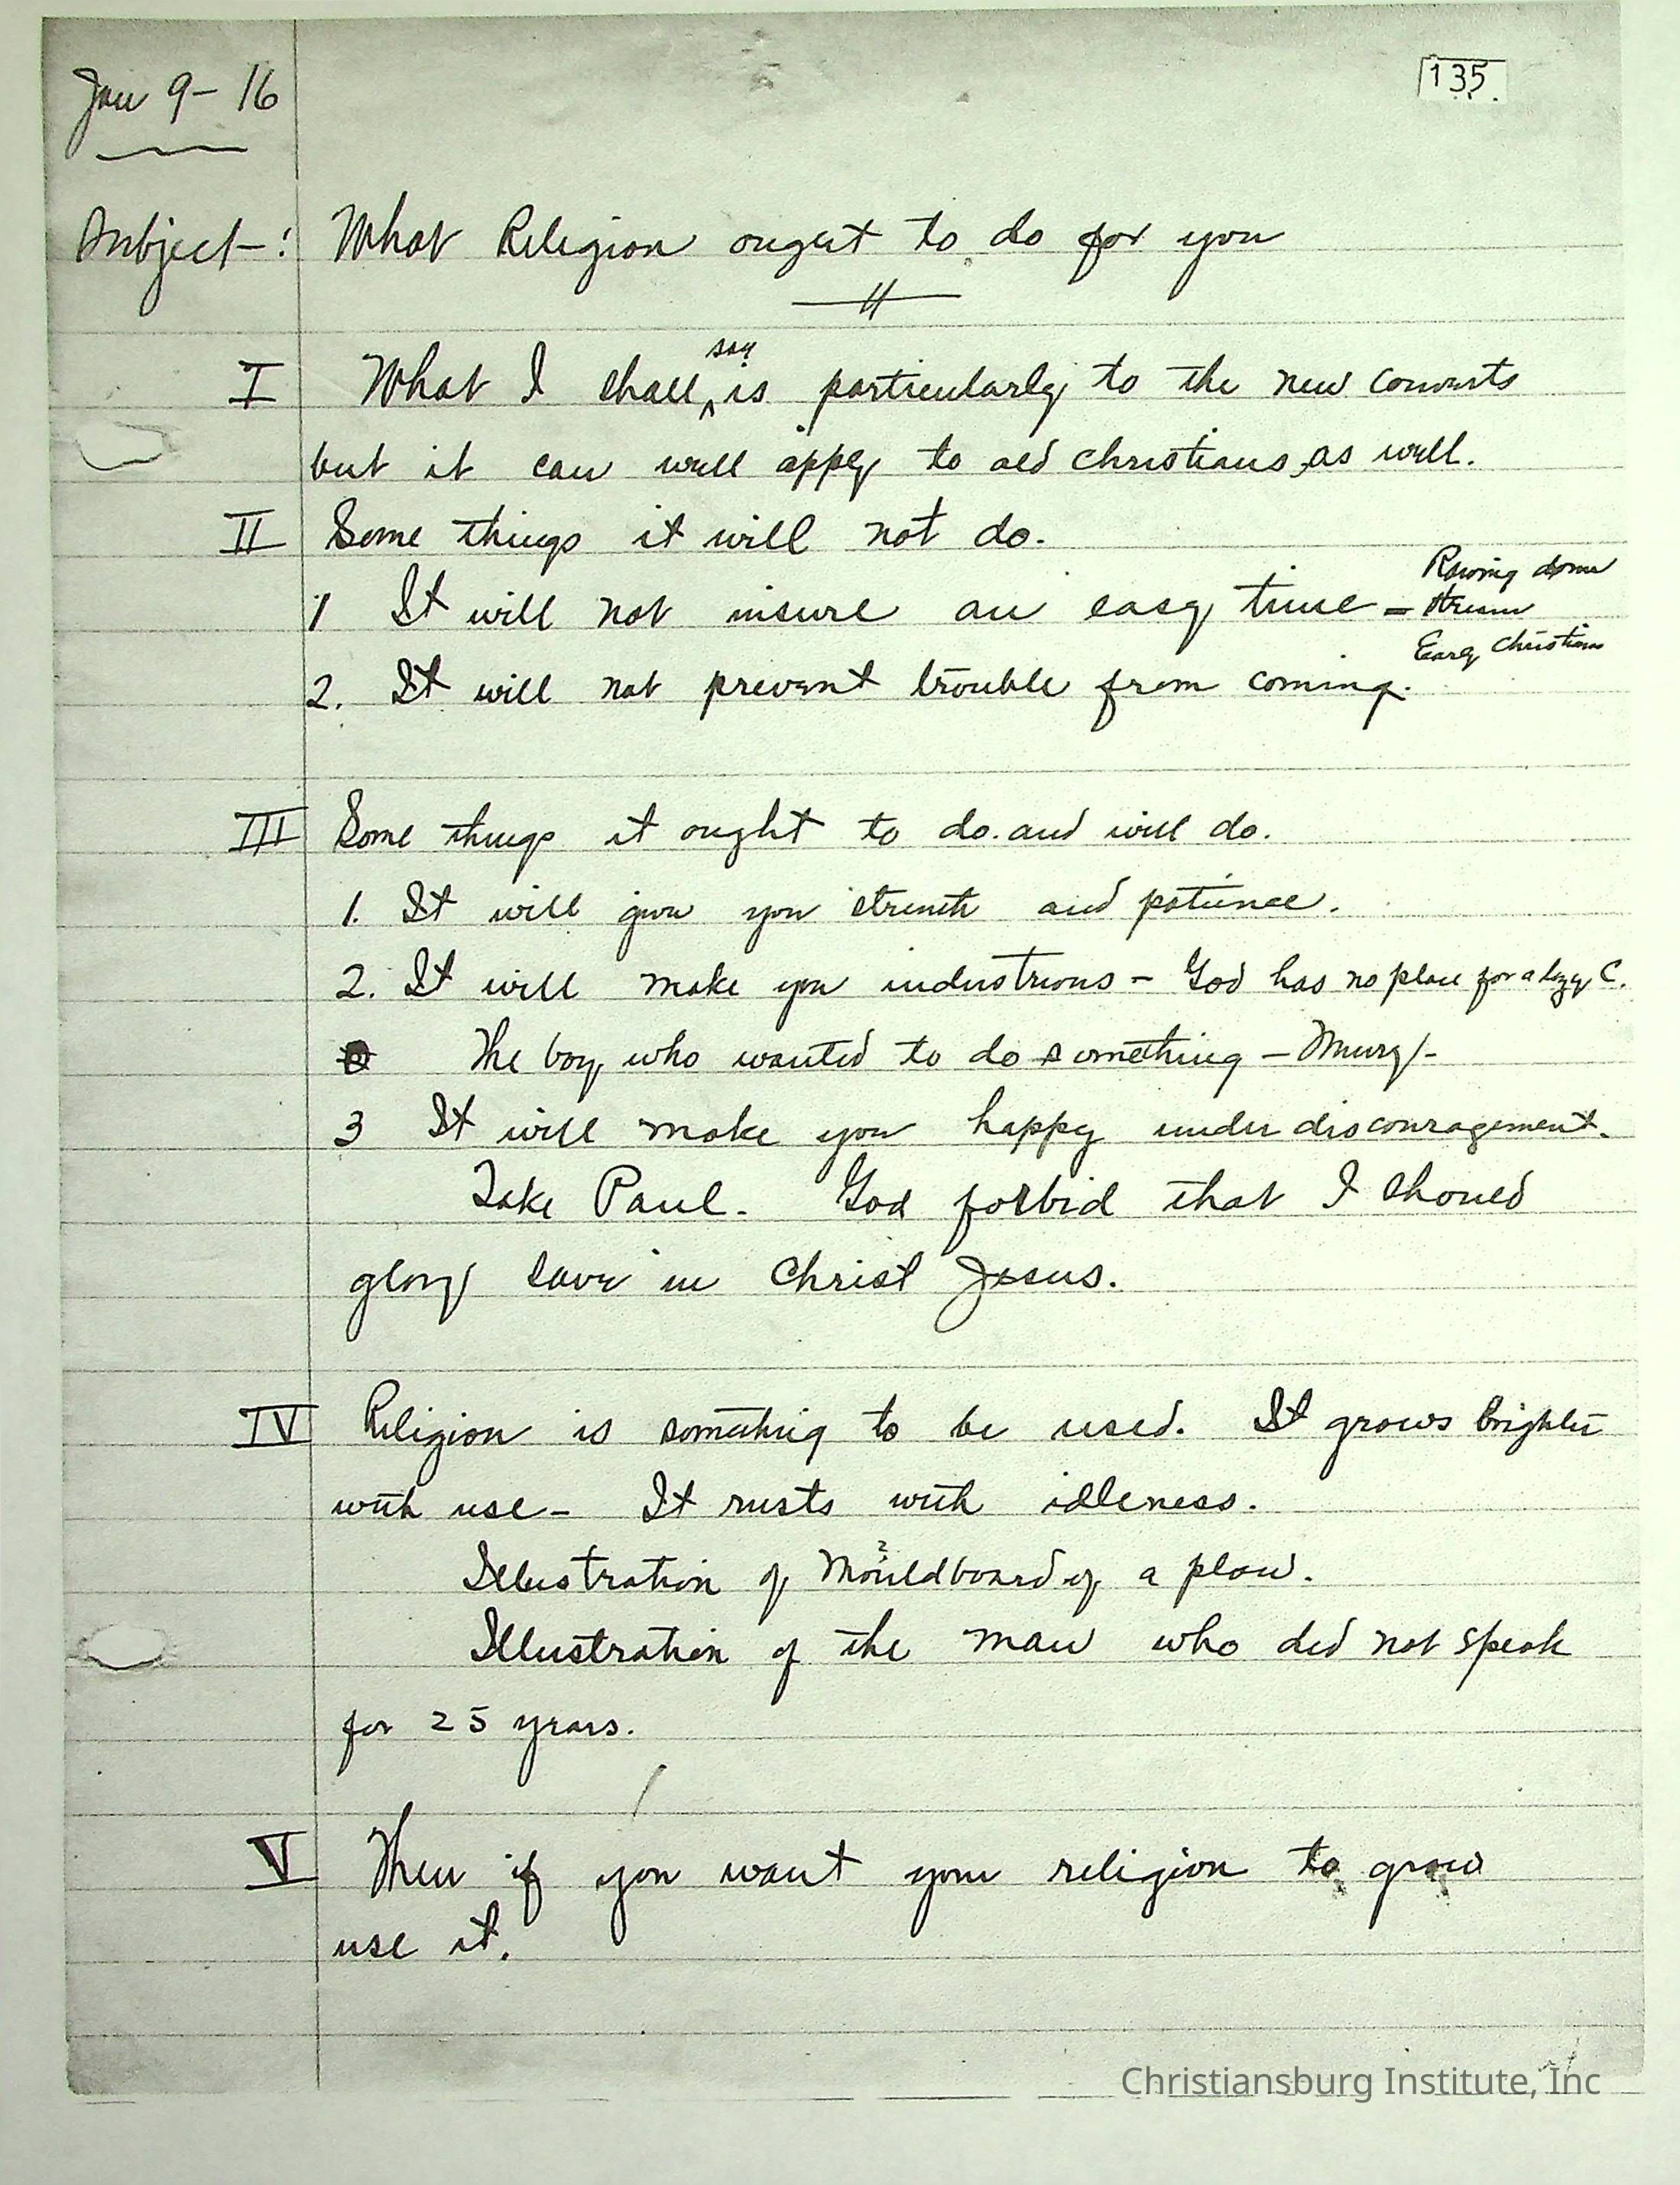 Jan 9-16
135
Subject-: What Religion ought to do for you
I What I shall say is particularly to the new converts
but it can well apply to old christians, as well.
II Some things it will not do.
1 It will not insure an easy time - Rowing down stream
Early Christians
2. It will not prevent trouble from coming.
III Some things it ought to do. and will do.
1. It will give you strenth and patience.
2. It will make you industrious - God has no place for a lazy C.
The boy who wanted to do something -
3 It will make you happy under discouragement.
Take Paul. God forbid that I should
glory save in Christ Jesus.
IV Religion is something to be used. It grows brighter
with use - It rusts with idleness.
Illustration of Mouldboard of a plow.
Illustration of the man who did not speak
for 25 years.
V Then if you want your religion to grow
use it.
Christiansburg Institute, Inc